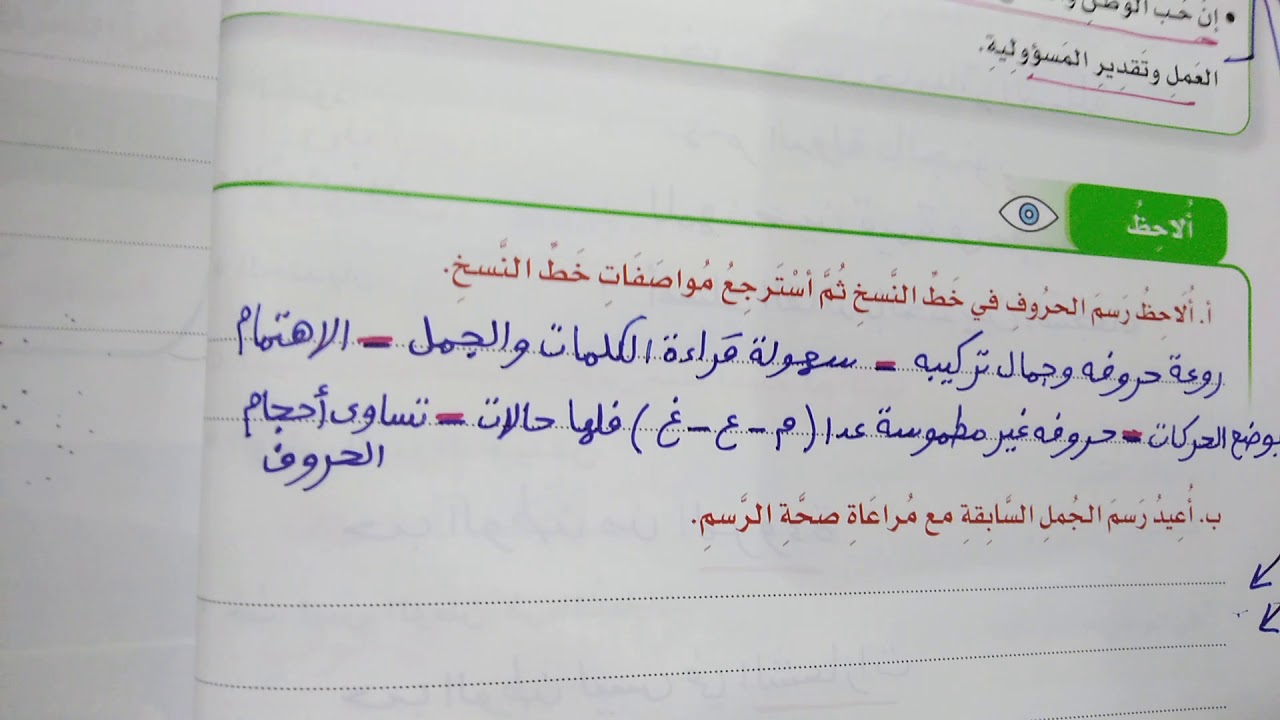 • إنَّ حُبَّ الوَطَنِ
العَملِ وتَقدِيرِ المَسؤولِيةِ.
أُلاحِظُ
أ. أُلاحِظُ رَسمَ الحرُوف في خَطِّ النَّسخِ ثُمَّ أسْتَرجِعُ مُواصَفَاتِ خَطِّ النَّسخِ.
روعة حروفه وجمال تركيبه = سهولة قراءة الكلمات والجمل = الاهتمام
بوضع الحركات = حروفه غير مطموسة عدا ( م - ع - غ ) فلها حالات = تساوى أحجام
الحروف
ب. أُعِيدُ رَسمَ الجُملِ السَّابِقةِ مع مُراعَاةِ صحَّةِ الرَّسمِ.